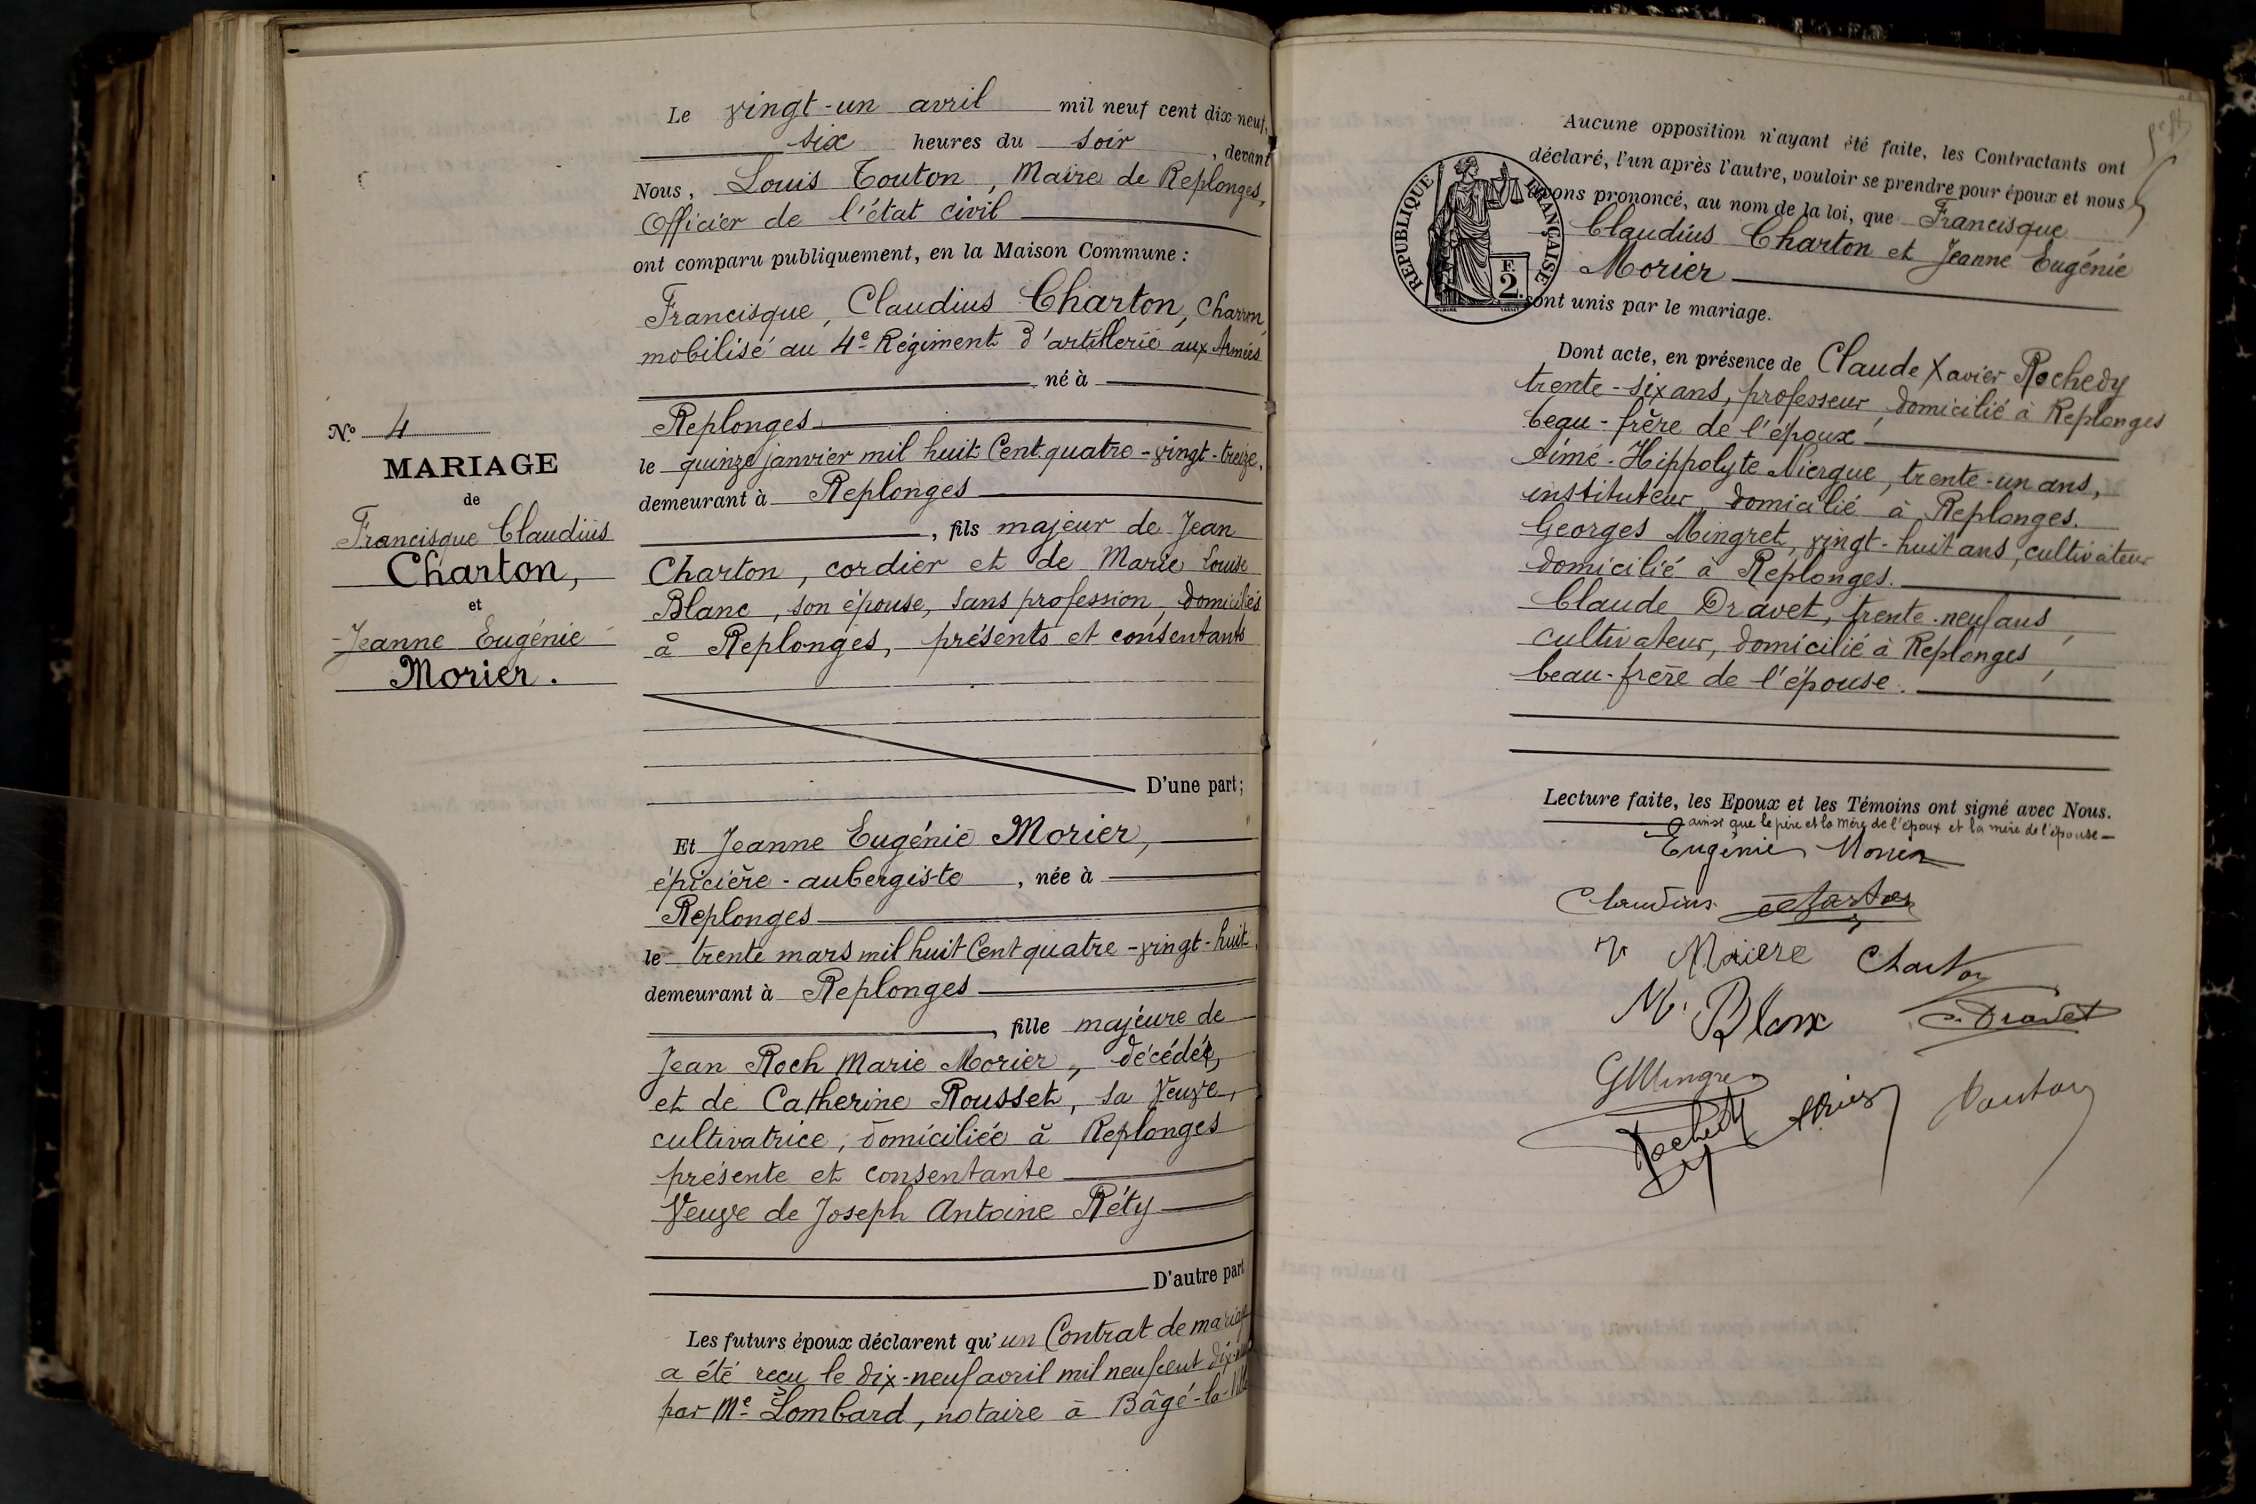 Le vingt-un avril mil neuf cent dix-neuf,
six heures du soir, devant
Nous, Louis Touton, Maire de Replonges,
Officier de l'état civil
ont comparu publiquement, en la Maison Commune :
Francisque, Claudius Charton, Charron,
mobilisé au 4e Régiment d'artillerie aux Armées
né à
Replonges
le quinze janvier mil huit Cent quatre-vingt-treize,
demeurant à Replonges
, fils majeur de Jean
Charton, cordier et de Marie Louise
Blanc, son épouse, sans profession, domiciliés
à Replonges, présents et consentants
D'une part;
Et Jeanne Eugénie Morier,
épicière-aubergiste, née à
Replonges
le trente mars mil huit Cent quatre-vingt-huit,
demeurant à Replonges
, fille majeure de
Jean Roch Marie Morier, décédé,
et de Catherine Rousset, sa Veuve,
cultivatrice, domiciliée à Replonges
présente et consentante
Veuve de Joseph Antoine Réty
D'autre part
Les futurs époux déclarent qu'un Contrat de mariage
a été reçu le dix-neuf avril mil neuf cent dix-neuf
par Me Lombard, notaire à Bâgé-la-Ville
No 4
MARIAGE
de
Francisque Claudius
Charton,
et
Jeanne Eugénie
Morier.
Aucune opposition n'ayant été faite, les Contractants ont
déclaré, l'un après l'autre, vouloir se prendre pour époux et nous
avons prononcé, au nom de la loi, que Francisque
Claudius Charton et Jeanne Eugénie
Morier
sont unis par le mariage.
RÉPUBLIQUE FRANÇAISE
F.
2.
Dont acte, en présence de Claude Xavier Rochedy
trente-six ans, professeur, domicilié à Replonges
beau-frère de l'époux
Aimé-Hippolyte Niergue, trente-un ans,
instituteur, domicilié à Replonges.
Georges Mingret, vingt-huit ans, cultivateur
domicilié à Replonges.
Claude Dravet, trente-neuf ans,
cultivateur, domicilié à Replonges,
beau-frère de l'épouse.
Lecture faite, les Epoux et les Témoins ont signé avec Nous.
ainsi que le père et la mère de l'époux et la mère de l'épouse
Eugénie Morier
Claudius Charton
Charton
M. Blanc
C. Dravet
GMingret
Rochedy
Touton